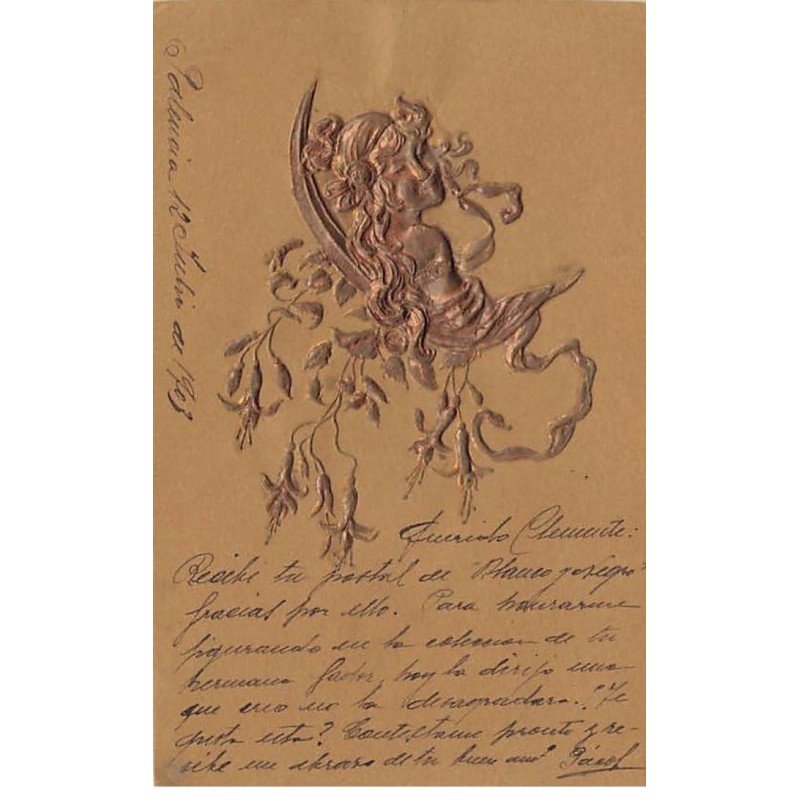 Palencia 12 Julio de 1903
Querido Clemente:
Recibí tu postal de "Blanco y negro"
gracias por ello. Para honrarme
figurando en la coleccion de tu
hermana hoy la dirijo una
que creo no la desagradara. ¿Te
gusta esta? Contestame pronto y re-
cibe un abrazo de tu buen amº